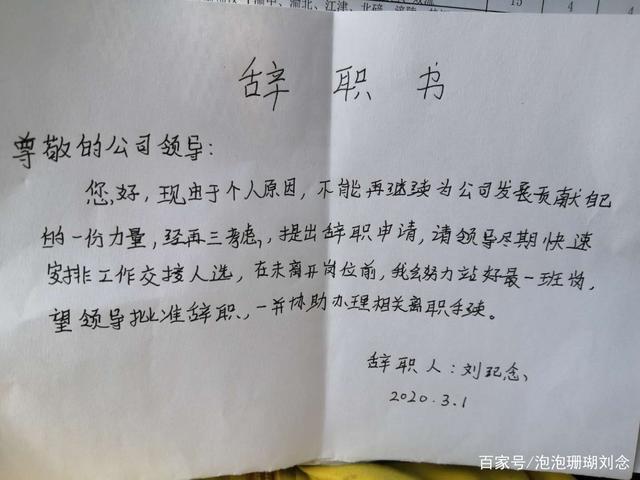 渝北、江津、北碚、涪陵
15
4
4
辞职书
尊敬的公司领导:
您,好,现由于个人原因,不能再继续为公司发展贡献自己
的一份力量,经再三考虑,,提出辞职申请,请领导尽期快速
安排工作交接人选,在未离开岗位前,我会努力站好最一班岗,
望领导批准辞职,一并协助办理相关离职手续。
辞职人:刘念
2020.3.1
百家号/泡泡珊瑚刘念